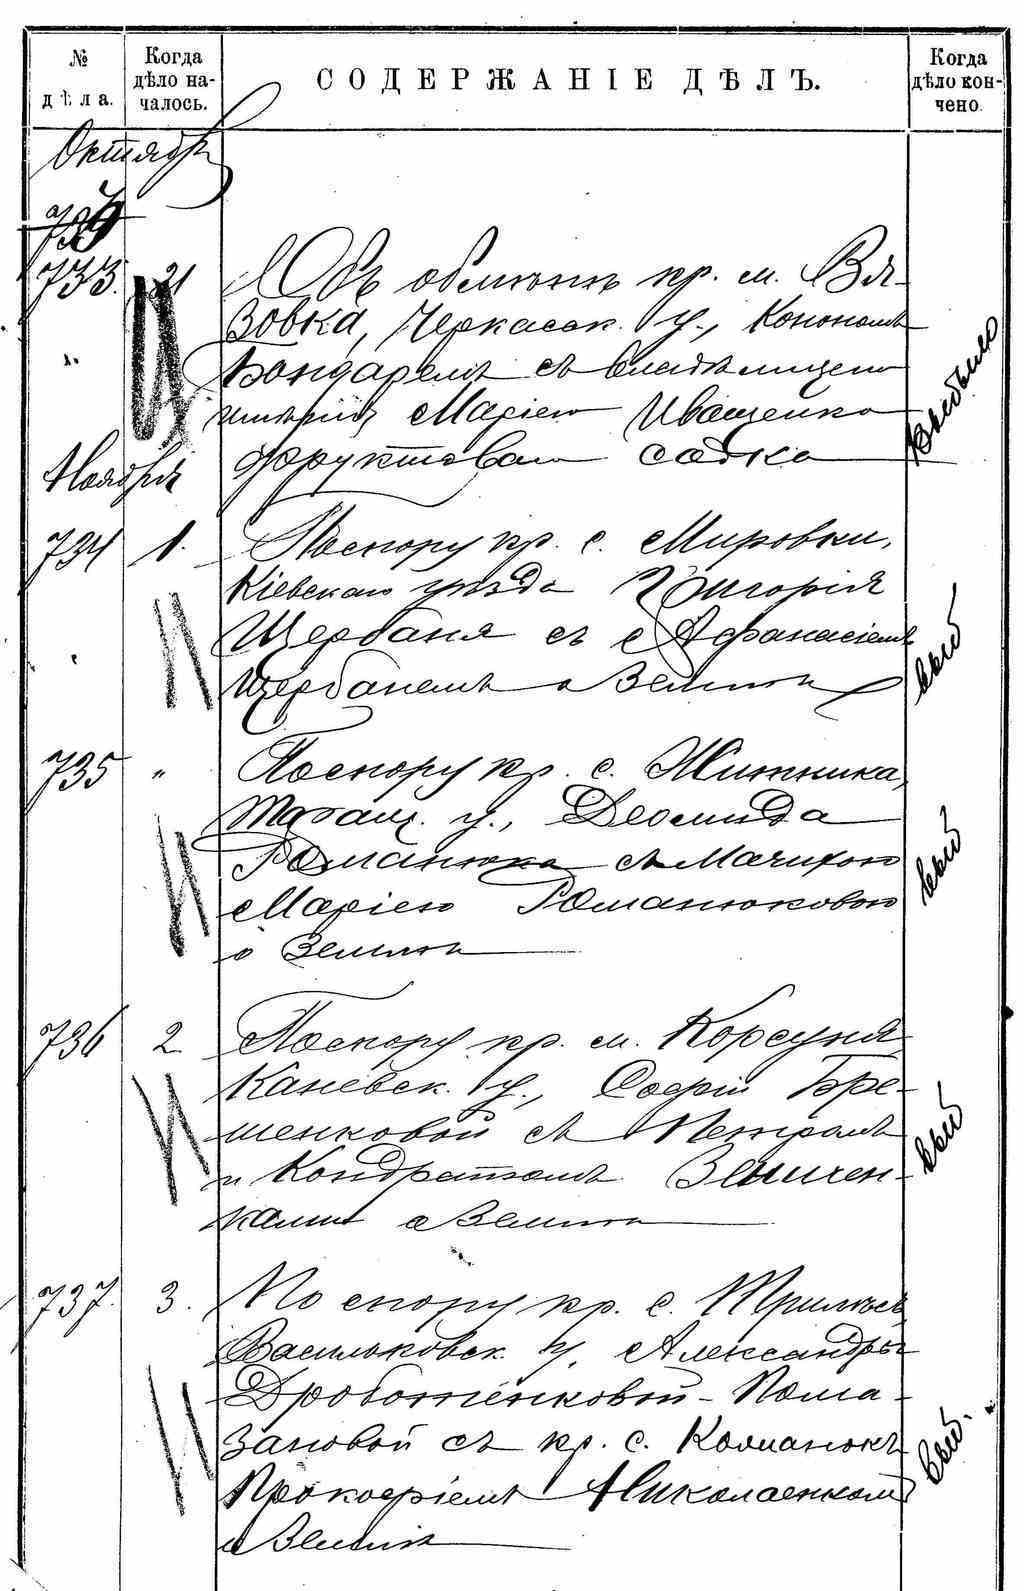 № дѣла.
Когда дѣло на-
чалось.
СОДЕРЖАНІЕ ДѢЛЪ.
Когда
дѣло кон-
чено.
Октябрь
733. 21 Объ обмѣнѣ кр. м. Вя-
зовка, Черкасск. у., Конономъ
Бондаремъ съ владѣлицею
имѣнія Маріею Иващенко
фруктоваго садка
Выбыло
Ноября
734 1. По спору кр. с. Мировки,
Кіевскаго уѣзда Григорія
Щербаня съ Афанасіемъ
Щербанемъ о землѣ
выб
735 " По спору кр. с. Житника,
Таращ. у., Деомида
Романюка съ мачихою
Маріею Романюковою
о землѣ
выб
736 2 По спору кр. м. Корсуня
Каневск. у., Софіи Бре-
шенковой съ Петромъ
и Кондратомъ
ками о землѣ
выб
737. 3. По спору кр. с. Трилѣсъ
Васильковск. у. Александры
Дроботенковой - Пома-
зановой съ кр. с. Кожанокъ
Прокофіемъ Николаенкомъ
о землѣ
выб.